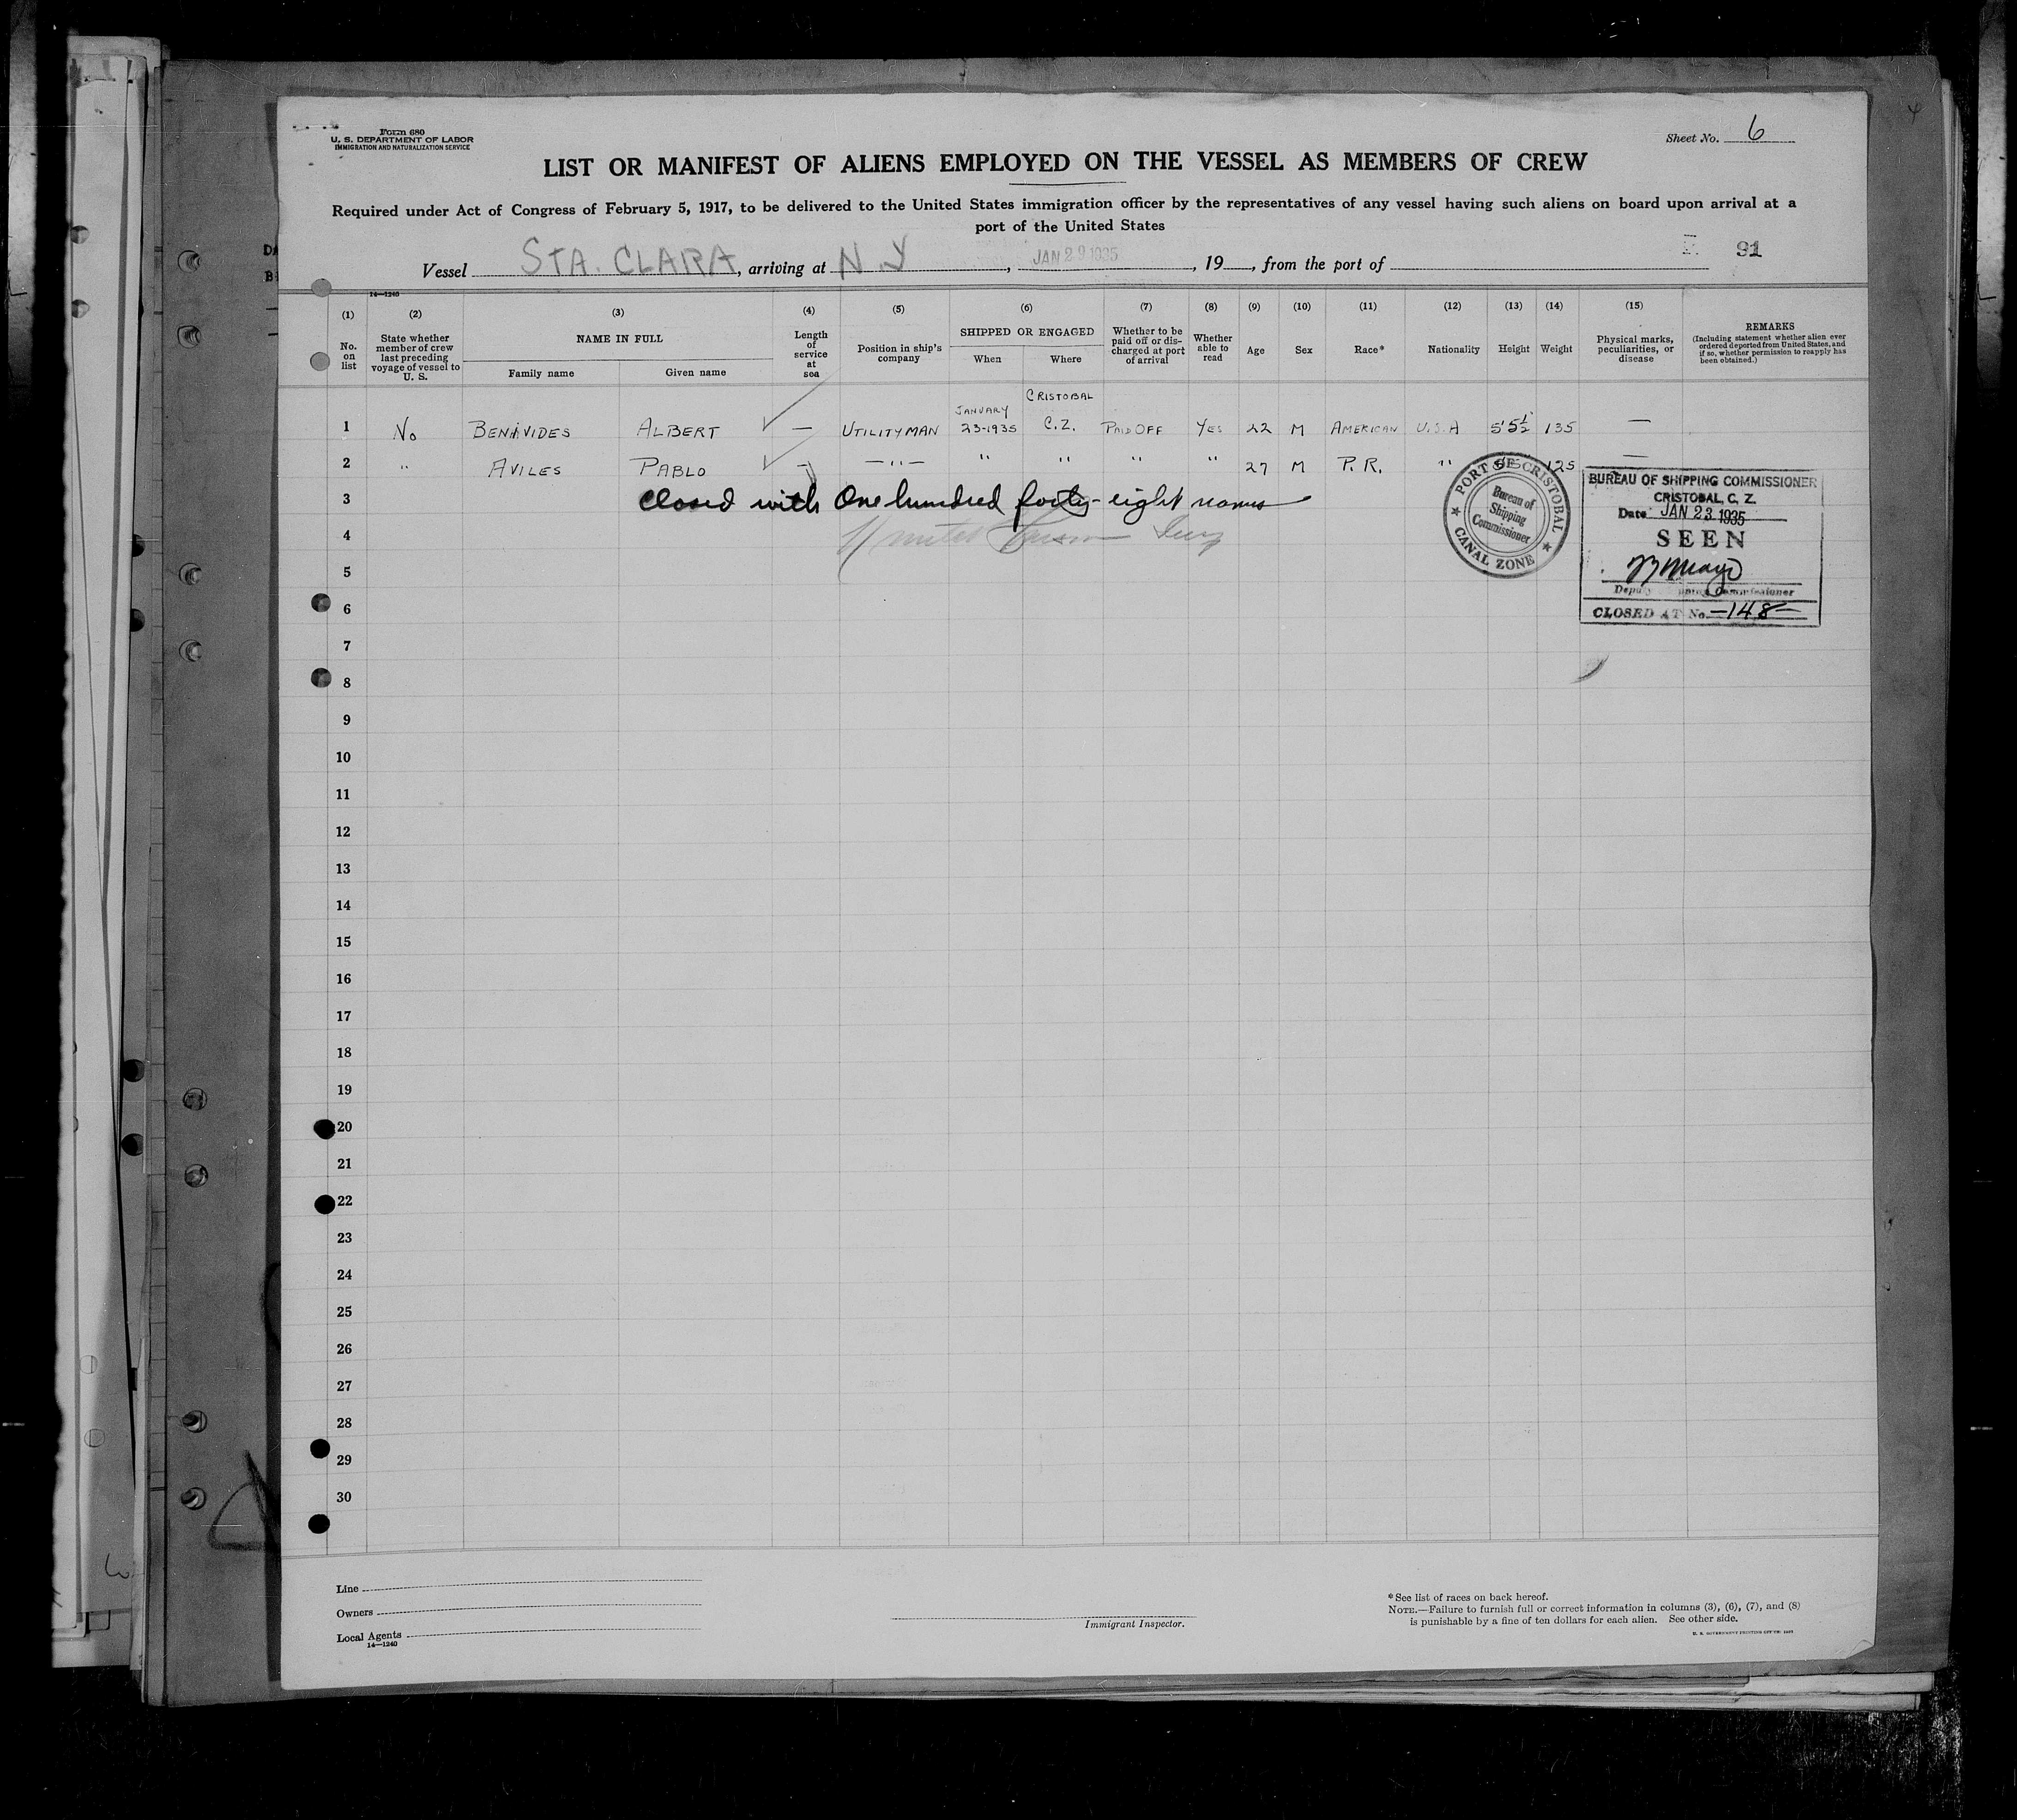 Form 680
U. S. DEPARTMENT OF LABOR
IMMIGRATION AND NATURALIZATION SERVICE
Sheet No. 6
LIST OR MANIFEST OF ALIENS EMPLOYED ON THE VESSEL AS MEMBERS OF CREW
Required under Act of Congress of February 5, 1917, to be delivered to the United States immigration officer by the representatives of any vessel having such aliens on board upon arrival at a
port of the United States
91
Vessel STA. CLARA, arriving at N.Y, JAN 29 1935, 19, from the port of
14—1240
(1) (2) (3) (4) (5) (6) (7) (8) (9) (10) (11) (12) (13) (14) (15)
No. on list
State whether member of crew last preceding voyage of vessel to U. S.
NAME IN FULL
Family name Given name
Length of service at sea
Position in ship's company
SHIPPED OR ENGAGED
When Where
Whether to be paid off or discharged at port of arrival
Whether able to read
Age
Sex
Race*
Nationality
Height
Weight
Physical marks, peculiarities, or disease
REMARKS
(Including statement whether alien ever ordered deported from United States, and if so, whether permission to reapply has been obtained.)
1 No BENAVIDES ALBERT — UTILITYMAN JANUARY 23-1935 CRISTOBAL C.Z. PAID OFF YES 22 M AMERICAN U.S.A 5'5½ 135 —
2 " AVILES PABLO — —"— " " " " 27 M P.R. " 125 —
3 Closed with One hundred forty-eight names
4
5
6
7
8
9
10
11
12
13
14
15
16
17
18
19
20
21
22
23
24
25
26
27
28
29
30
PORT OF CRISTOBAL
Bureau of Shipping Commissioner
CANAL ZONE
BUREAU OF SHIPPING COMMISSIONER
CRISTOBAL, C. Z.
Date JAN 23 1935
SEEN
Deputy Shipping Commissioner
CLOSED AT No. —148—
Line
Owners
Local Agents
14—1240
Immigrant Inspector.
*See list of races on back hereof.
NOTE.—Failure to furnish full or correct information in columns (3), (6), (7), and (8)
is punishable by a fine of ten dollars for each alien. See other side.